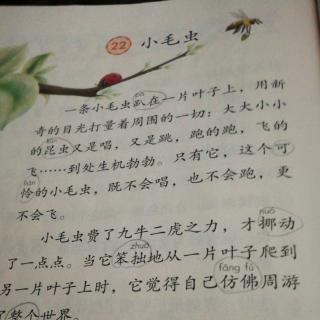 22 小毛虫
一条小毛虫趴在一片叶子上，用新
奇的目光打量着周围的一切：大大小小
的昆虫又是唱，又是跳，跑的跑，飞的
飞……到处生机勃勃。只有它，这个可
lián
怜的小毛虫，既不会唱，也不会跑，更
不会飞。
nuó
小毛虫费了九牛二虎之力，才挪动
zhuō
了一点点。当它笨拙地从一片叶子爬到
fǎng fú
另一片叶子上时，它觉得自己仿佛周游
了整个世界。